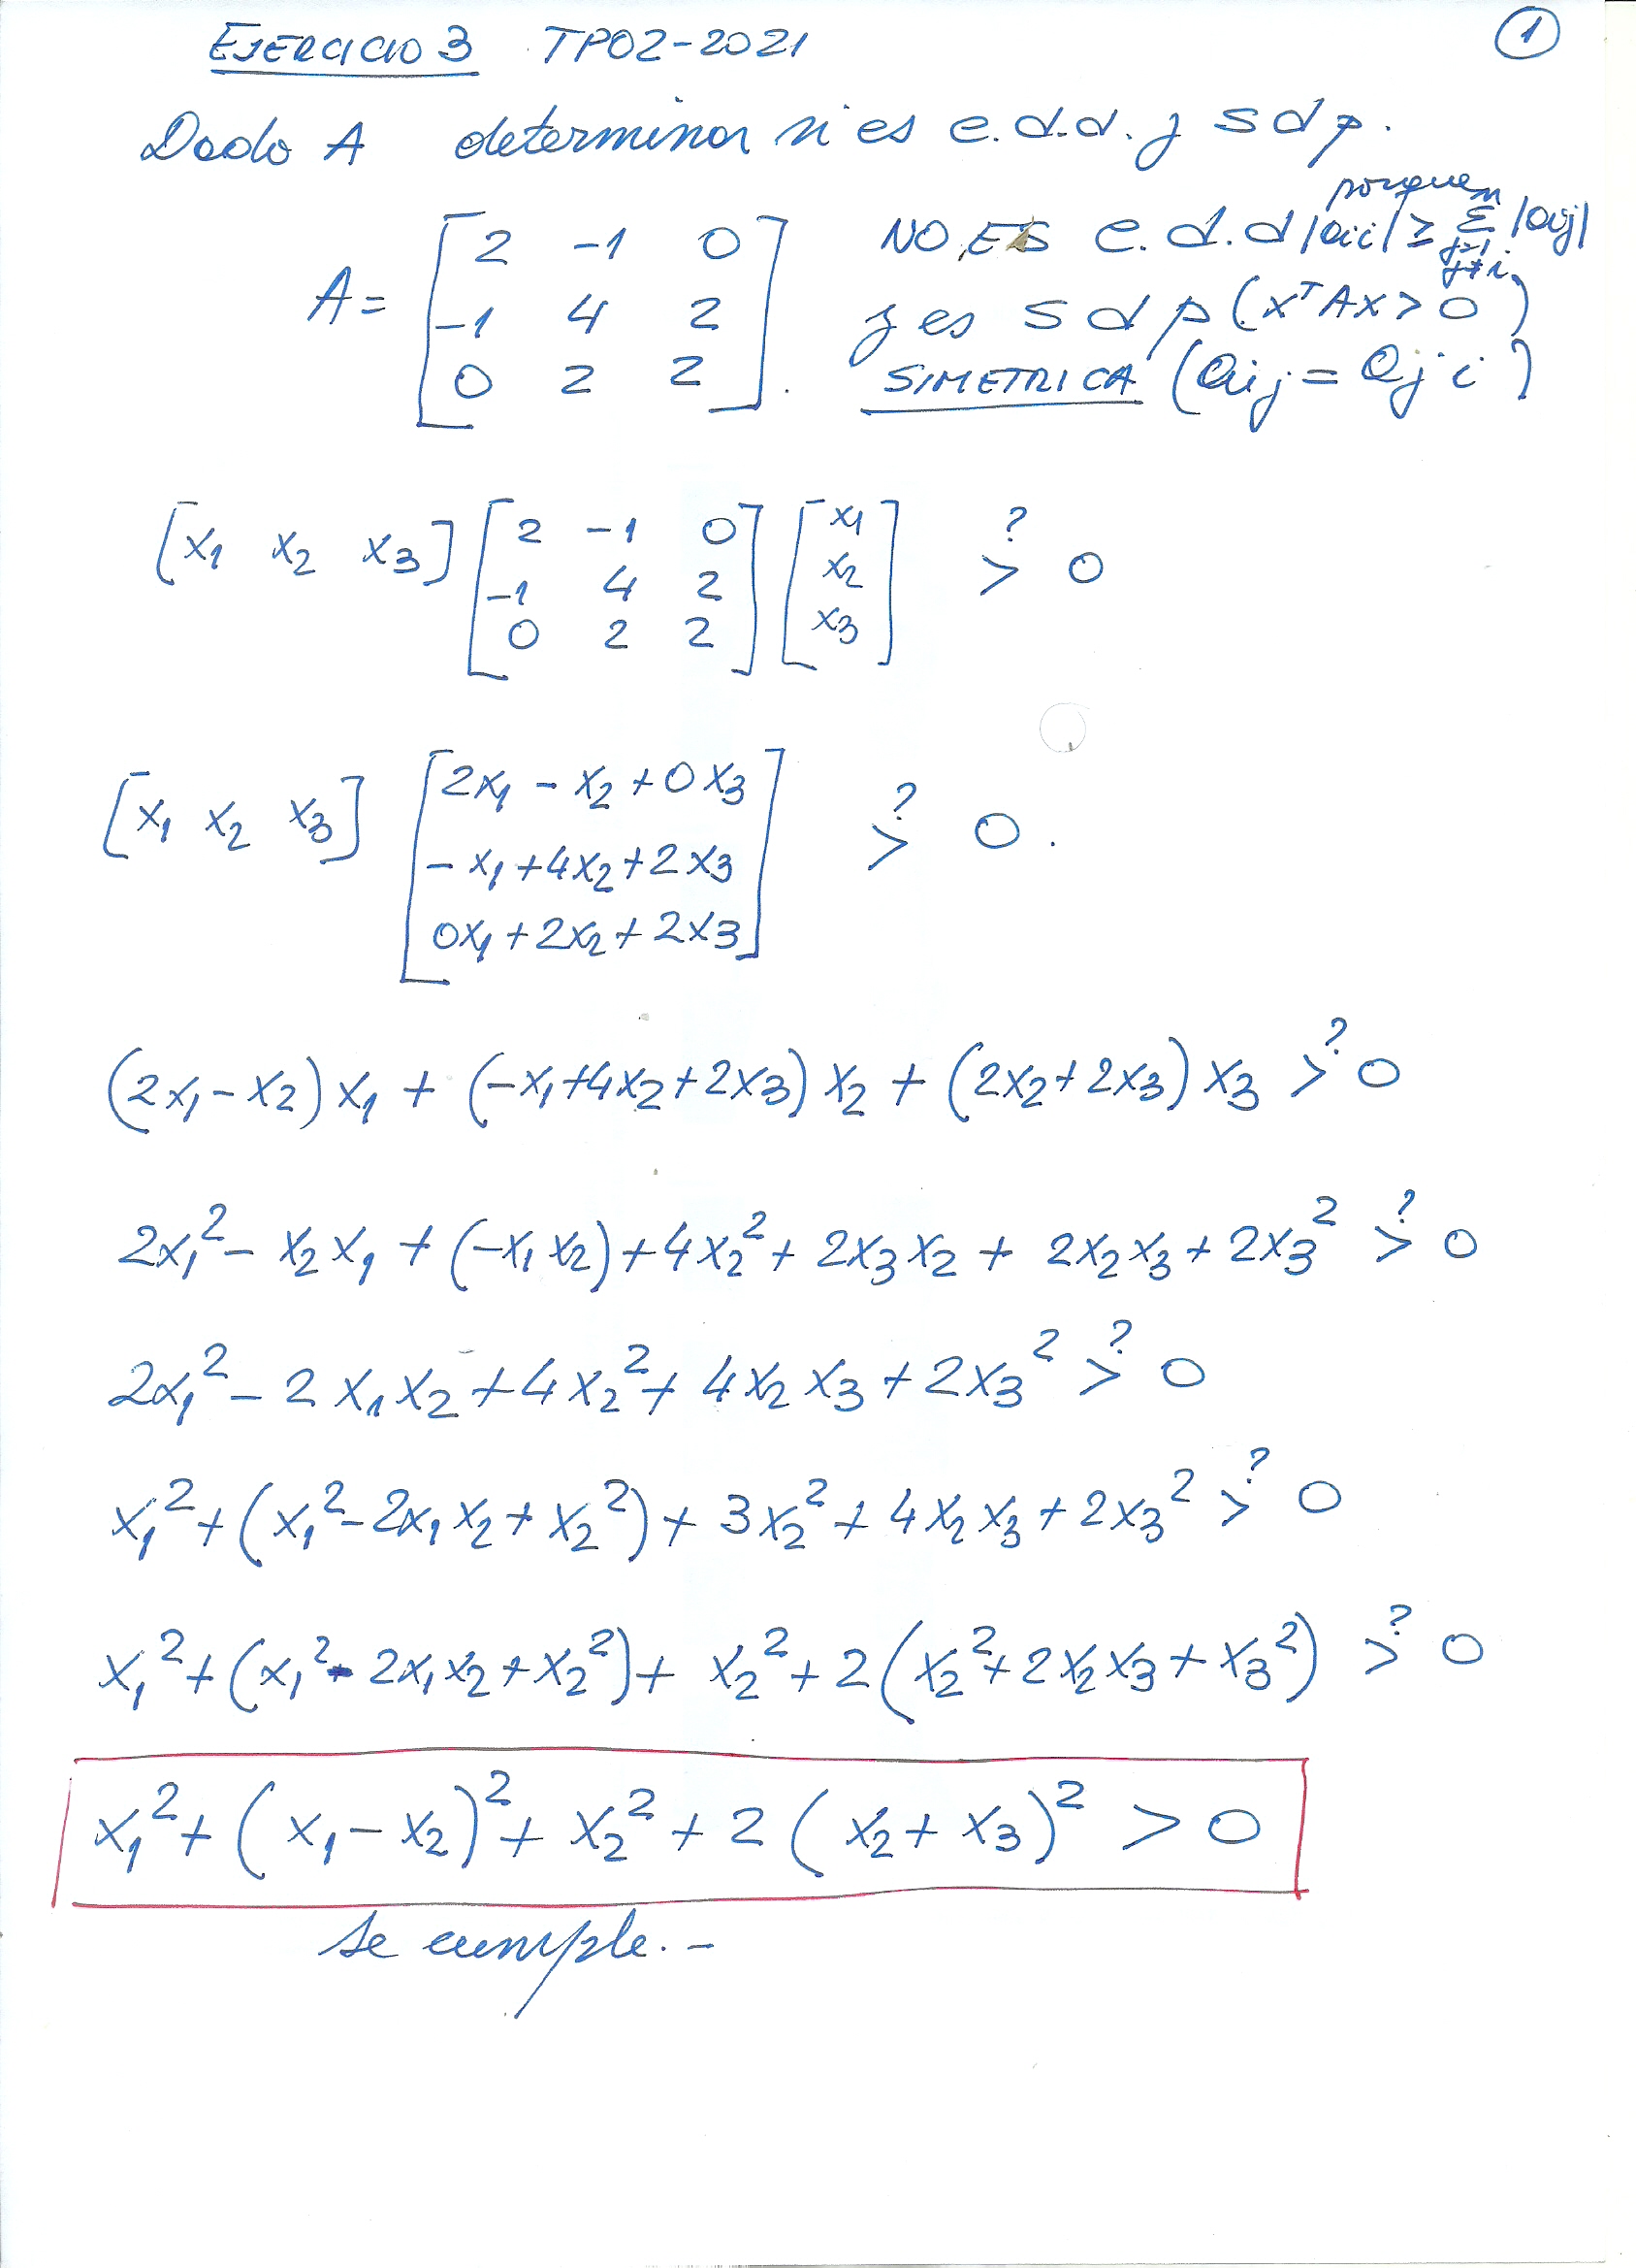 EJERCICIO 3 TP02-2021 ①
Dado A determinar si es e.d.d. y sdp.
porque
A = [2 -1 0; -1 4 2; 0 2 2]. NO ES e.d.d |aii| ≥ Σ(j=1, j≠i)^n |aij|
y es sdp (xᵀAx > 0)
SIMETRICA (aij = aji)
[x₁ x₂ x₃] [2 -1 0; -1 4 2; 0 2 2] [x₁; x₂; x₃] >? 0
[x₁ x₂ x₃] [2x₁ - x₂ + 0x₃; -x₁ + 4x₂ + 2x₃; 0x₁ + 2x₂ + 2x₃] >? 0.
(2x₁ - x₂) x₁ + (-x₁ + 4x₂ + 2x₃) x₂ + (2x₂ + 2x₃) x₃ >? 0
2x₁² - x₂x₁ + (-x₁x₂) + 4x₂² + 2x₃x₂ + 2x₂x₃ + 2x₃² >? 0
2x₁² - 2x₁x₂ + 4x₂² + 4x₂x₃ + 2x₃² >? 0
x₁² + (x₁² - 2x₁x₂ + x₂²) + 3x₂² + 4x₂x₃ + 2x₃² >? 0
x₁² + (x₁² - 2x₁x₂ + x₂²) + x₂² + 2(x₂² + 2x₂x₃ + x₃²) >? 0
x₁² + (x₁ - x₂)² + x₂² + 2(x₂ + x₃)² > 0
se cumple.-